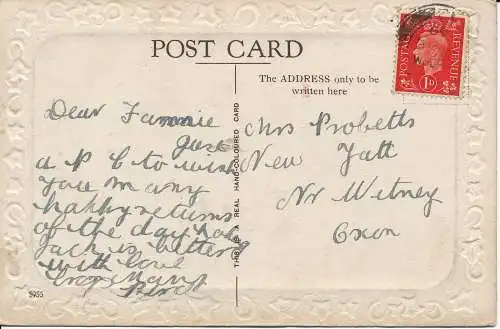 POST CARD
The ADDRESS only to be
written here
POSTAGE
REVENUE
1D
THIS IS A REAL HAND-COLOURED CARD
Dear Fannie
Just
a P C to wish
you many
happy returns
of the day hope
Jack is better
with love
from
Mrs Probetts
New Yatt
Nr Witney
Oxon